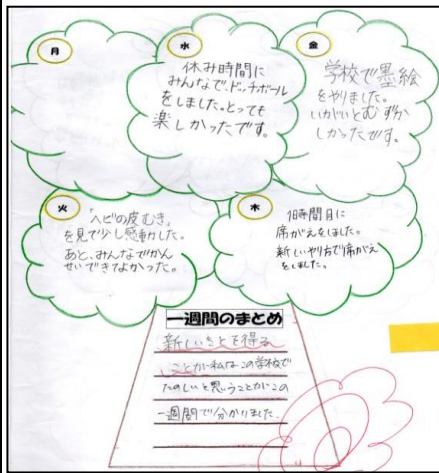 月
水
休み時間に
みんなで、ドッチボール
をしました。とっても
楽しかったです。
金
学校で墨絵
をやりました。
いがいとむずか
しかったです。
火
ヘビの皮むき、
を見て少し感動した。
あと、みんなでかん
せいできてよかった。
木
1時間目に
席がえをしました。
新しいやり方で席がえ
をしました。
一週間のまとめ
新しいことを得る
ことが私はこの学校で
たのしいと思うことがこの
一週間で分かりました。